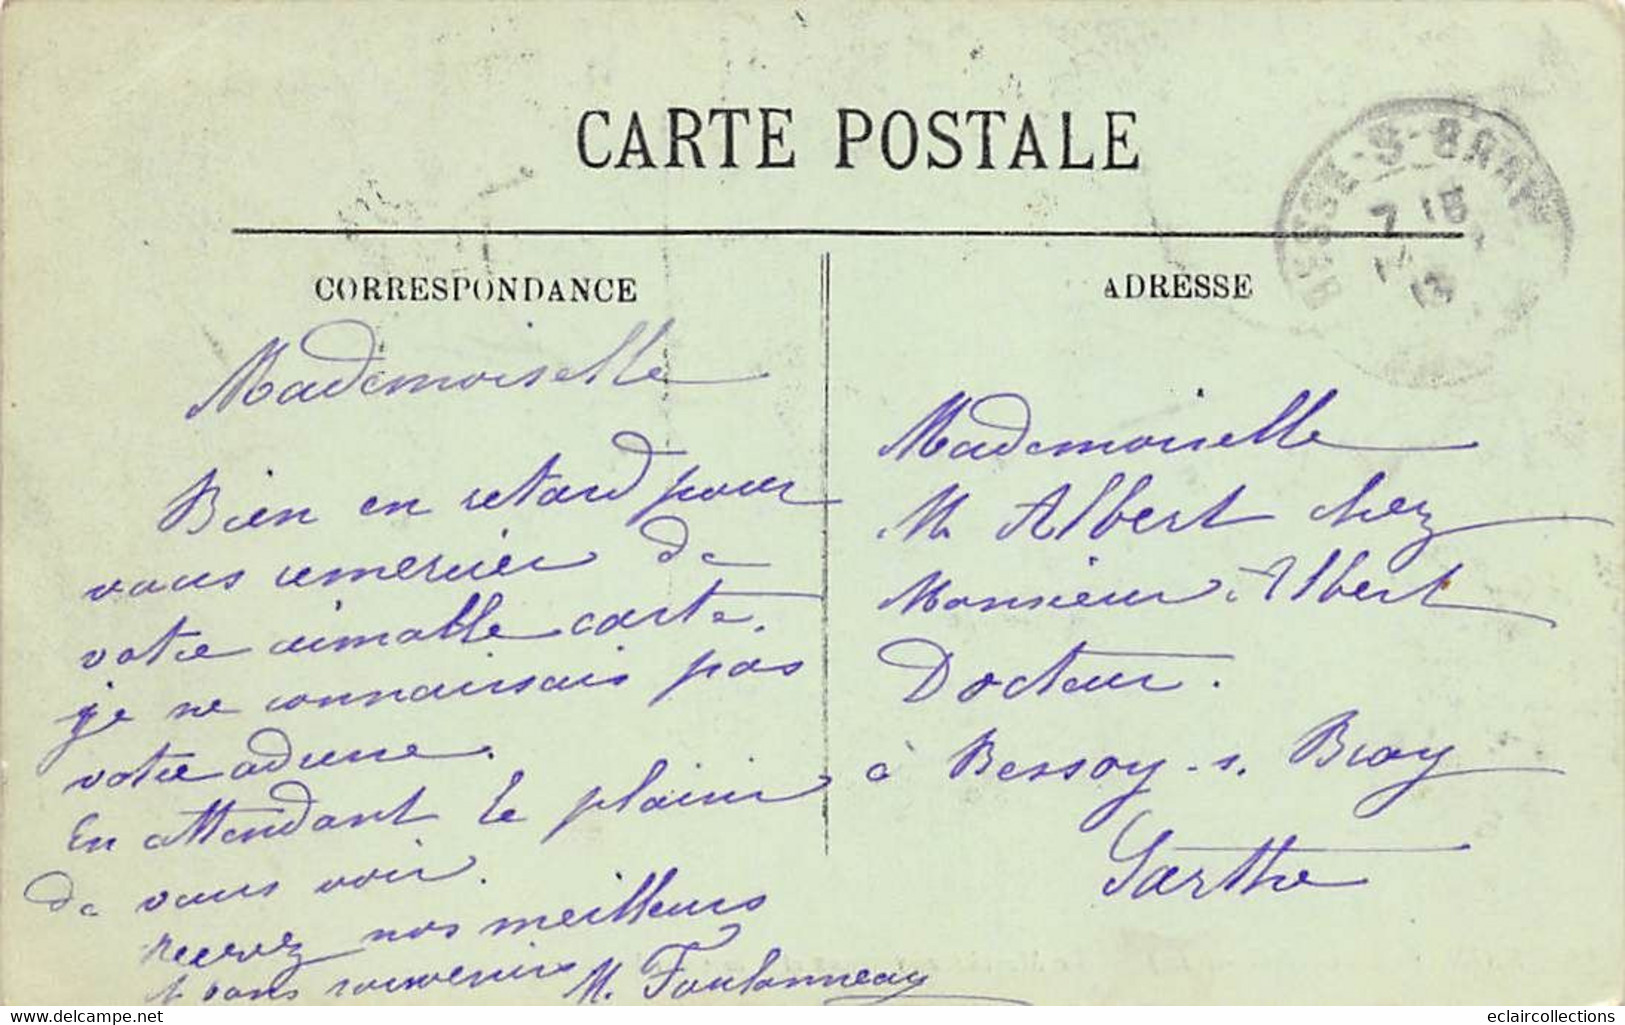 CARTE POSTALE
CORRESPONDANCE
Mademoiselle
Bien en retard pour
vous remercier de
votre aimable carte.
je ne connaissais pas
votre adresse.
En attendant le plaisir
de vous voir.
recevez nos meilleurs
& bons souvenirs
M. Foulonneau
ADRESSE
Mademoiselle
M Albert chez
Monsieur Albert
Docteur.
à Bessay-s. Bray
Sarthe
BESSE-S-BRAYE
7 15
13
delcampe.net
eclaircollections